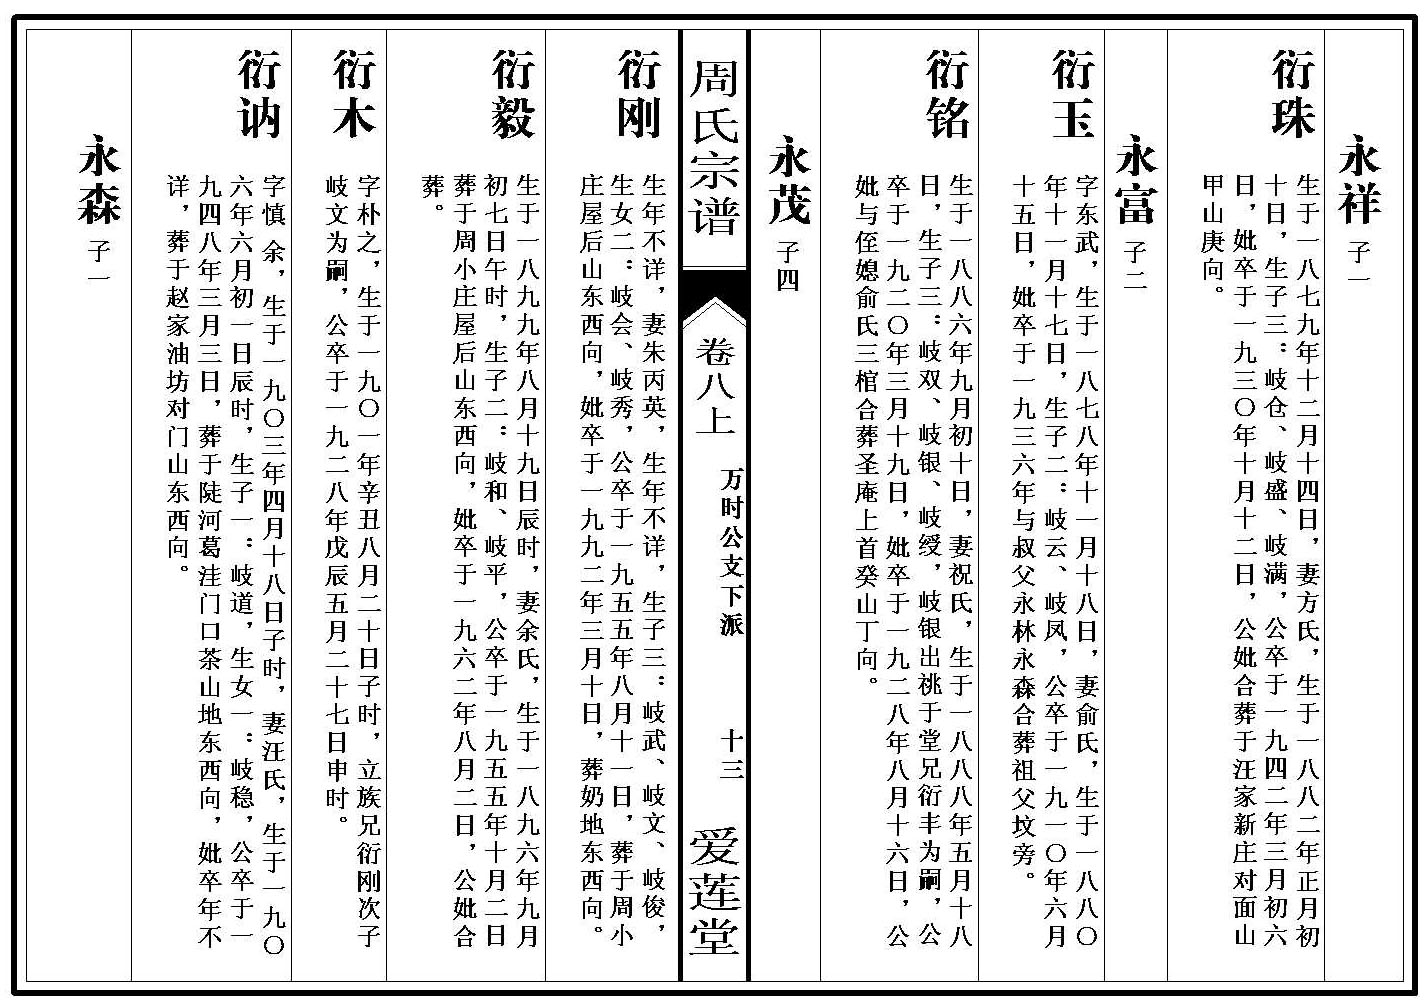 永祥 子一
衍珠
生于一八七九年十二月十四日，妻方氏，生于一八八二年正月初
十日，生子三：岐仓、岐盛、岐满，公卒于一九四二年三月初六
日，妣卒于一九三〇年十月十二日，公妣合葬于汪家新庄对面山
甲山庚向。
永富 子二
衍玉
字东武，生于一八七八年十一月十八日，妻俞氏，生于一八八〇
年十一月十七日，生子二：岐云、岐凤，公卒于一九一〇年六月
十五日，妣卒于一九三六年与叔父永林永森合葬祖父坟旁。
衍铭
生于一八八六年九月初十日，妻祝氏，生于一八八八年五月十八
日，生子三：岐双、岐银、岐绶，岐银出祧于堂兄衍丰为嗣，公
卒于一九二〇年三月十九日，妣卒于一九二八年八月十六日，公
妣与侄媳俞氏三棺合葬圣庵上首癸山丁向。
永茂 子四
周氏宗谱
卷八上
万时公支下派
十三
爱莲堂
衍刚
生年不详，妻朱丙英，生年不详，生子三：岐武、岐文、岐俊，
生女二：岐会、岐秀，公卒于一九五五年八月十一日，葬于周小
庄屋后山东西向，妣卒于一九九二年三月十日，葬奶地东西向。
衍毅
生于一八九九年八月十九日辰时，妻余氏，生于一八九六年九月
初七日午时，生子二：岐和、岐平，公卒于一九五五年十月二日
葬于周小庄屋后山东西向，妣卒于一九六二年八月二日，公妣合
葬。
衍木
字朴之，生于一九〇一年辛丑八月二十日子时，立族兄衍刚次子
岐文为嗣，公卒于一九二八年戊辰五月二十七日申时。
衍讷
字慎余，生于一九〇三年四月十八日子时，妻汪氏，生于一九〇
六年六月初一日辰时，生子一：岐道，生女一：岐稳，公卒于一
九四八年三月三日，葬于陡河葛洼门口茶山地东西向，妣卒年不
详，葬于赵家油坊对门山东西向。
永森 子一